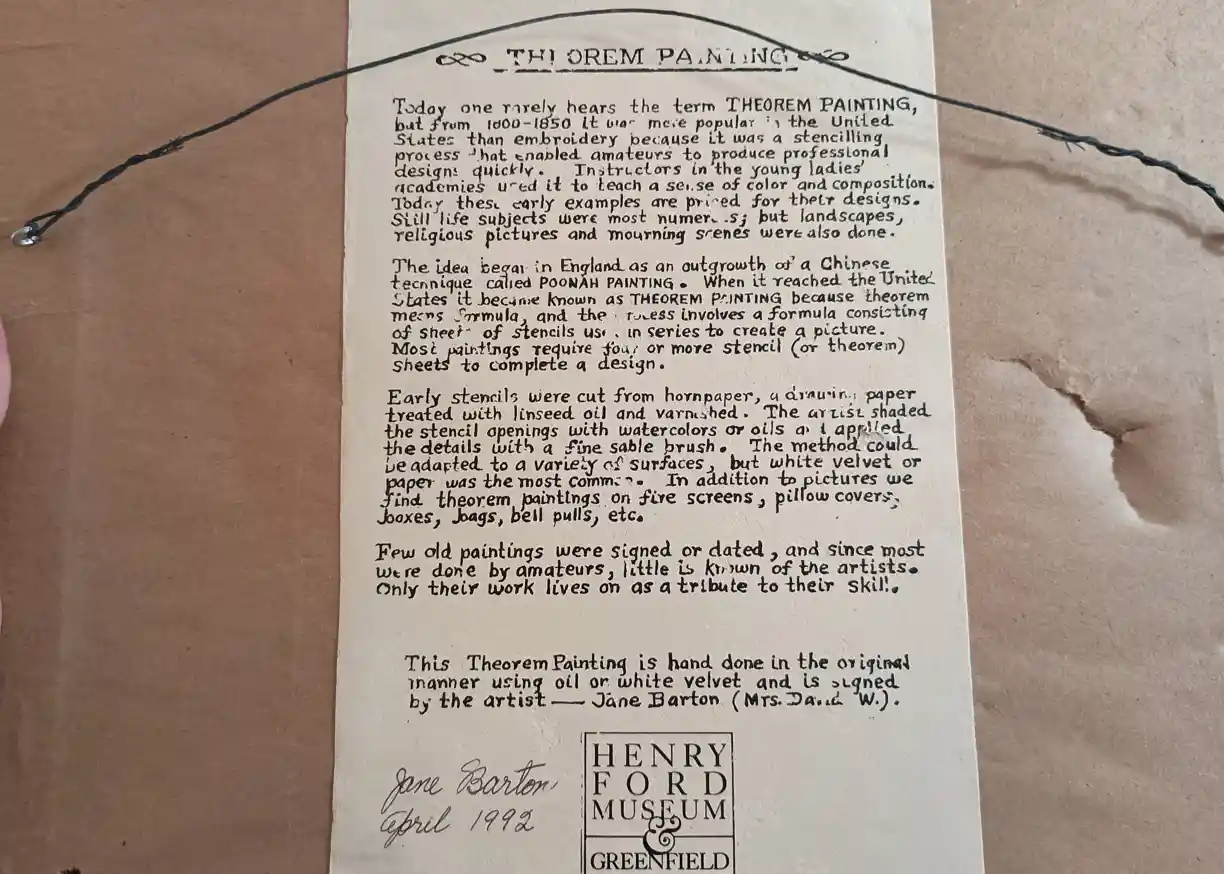 THEOREM PAINTING
Today one rarely hears the term THEOREM PAINTING,
but from 1800-1850 it was more popular in the United
States than embroidery because it was a stencilling
process that enabled amateurs to produce professional
designs quickly. Instructors in the young ladies'
academies used it to teach a sense of color and composition.
Today these early examples are prized for their designs.
Still life subjects were most numerous; but landscapes,
religious pictures and mourning scenes were also done.
The idea began in England as an outgrowth of a Chinese
technique called POONAH PAINTING. When it reached the United
States it became known as THEOREM PAINTING because theorem
means formula, and the process involves a formula consisting
of sheets of stencils used in series to create a picture.
Most paintings require four or more stencil (or theorem)
sheets to complete a design.
Early stencils were cut from hornpaper, a drawing paper
treated with linseed oil and varnished. The artist shaded
the stencil openings with watercolors or oils and applied
the details with a fine sable brush. The method could
be adapted to a variety of surfaces, but white velvet or
paper was the most common. In addition to pictures we
find theorem paintings on fire screens, pillow covers,
boxes, bags, bell pulls, etc.
Few old paintings were signed or dated, and since most
were done by amateurs, little is known of the artists.
Only their work lives on as a tribute to their skill.
This Theorem Painting is hand done in the original
manner using oil or white velvet and is signed
by the artist — Jane Barton (Mrs. David W.).
Jane Barton
April 1992
HENRY
FORD
MUSEUM
&
GREENFIELD